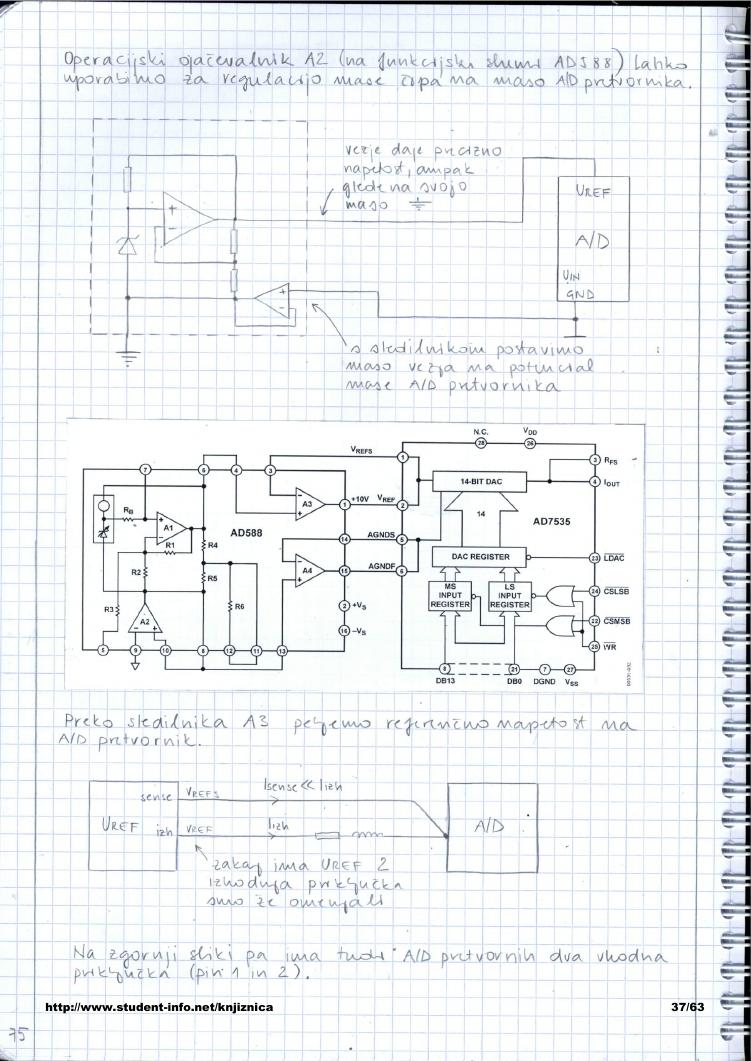 Operacijski ojačevalnik A2 (na funkcijski shemi AD588) lahko
uporabimo za regulacijo mase čipa na maso A/D pretvornika.
vezje daje precizno
napetost, ampak
glede na svojo
maso
UREF
A/D
UIN
GND
+
-
+
-
s sledilnikom postavimo
maso vezja na potencial
mase A/D pretvornika
N.C.
VDD
28
26
VREFS
7
6
4
3
1
3
RFS
14-BIT DAC
4
IOUT
RB
A1
A3
1
+10V
VREF
2
14
AD588
AD7535
R1
R4
14
AGNDS
5
DAC REGISTER
23
LDAC
R2
R5
A4
15
AGNDF
6
MS
INPUT
REGISTER
LS
INPUT
REGISTER
24
CSLSB
R3
R6
2
+VS
A2
16
-VS
22
CSMSB
5
9
10
8
12
11
13
25
WR
8
21
7
27
DB13
DB0
DGND
VSS
Preko sledilnika A3 peljemo referenčno napetost na
A/D pretvornik.
sense
VREFS
Isense << Iizh
UREF
izh
VREF
Iizh
A/D
zakaj ima UREF 2
izhodnja priključka
smo že omenjali
Na zgornji sliki pa ima tudi A/D pretvornih dva vhodna
priključka (pin 1 in 2).
http://www.student-info.net/knjiznica
37/63
75